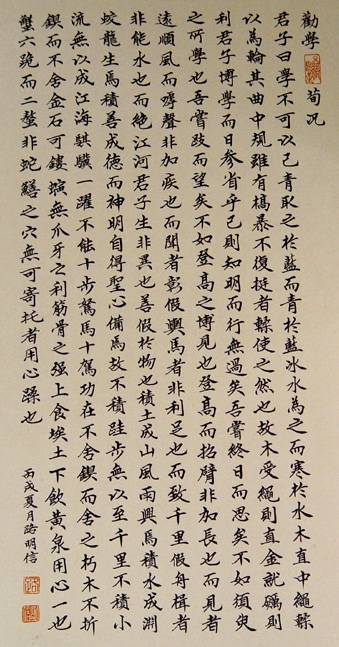 勸學 荀況
君子曰學不可以已青取之於藍而青於藍冰水為之而寒於水木直中繩輮
以為輪其曲中規雖有槁暴不復挺者輮使之然也故木受繩則直金就礪則
利君子博學而日參省乎己則知明而行無過矣吾嘗終日而思矣不如須臾
之所學也吾嘗跂而望矣不如登高之博見也登高而招臂非加長也而見者
遠順風而嘑聲非加疾也而聞者彰假輿馬者非利足也而致千里假舟楫者
非能水也而絕江河君子生非異也善假於物也積土成山風雨興焉積水成淵
蛟龍生焉積善成德而神明自得聖心備焉故不積跬步無以至千里不積小
流無以成江海騏驥一躍不能十步駑馬十駕功在不舍鍥而舍之朽木不折
鍥而不舍金石可鏤螾無爪牙之利筋骨之強上食埃土下飲黃泉用心一也
蟹六跪而二螯非蛇鱔之穴無可寄托者用心躁也
丙戌夏月路明信